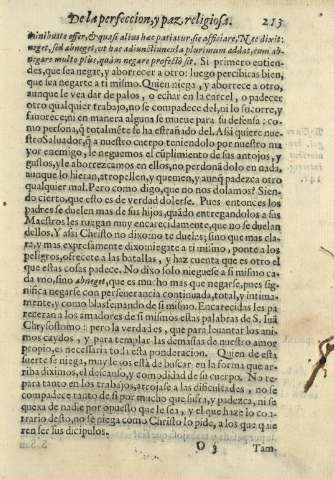 De la perfeccion, y paz religiosa. 213
minibusve esset, & quasi alius hæc patiatur, sic afficiare. Ne dixit:
neget, sed abneget, ut hac adiunctiuncula plurimum addat, cum ab-
negare multo plus, quàm negare profectò sit. Si primero entien-
des, que sea negar, y aborrecer a otro: luego percibiras bien,
que sea negarte a ti mismo. Quien niega, y aborrece a otro,
aunque le vea dar de palos, o echar en la carcel, o padecer
otro qualquier trabajo, no se compadece del, ni lo socorre, y
fauorece; ni en manera alguna se mueue para su defensa: co-
mo persona, q̃ totalmẽte se ha estrañado del. Assi quiere nue-
stro Saluador, q̃ a nuestro cuerpo teniendolo por nuestro ma
yor enemigo, le neguemos el cũplimiento de sus antojos, y
gustos, y le aborrezcamos en ellos, no perdonãdolo en nada,
aunque lo hieran, atropellen, y quemen, y aunq̃ padezca otro
qualquier mal. Pero como digo, que no nos dolamos? Sien-
do cierto, que esto es de verdad dolerse. Pues entonces los
padres se duelen mas de sus hijos, quãdo entregandolos a sus
Maestros les ruegan muy encarecidamente, que no se duelan
dellos. Y assi Christo no dixo no te duelas; sino que mas cla-
ra, y mas expressamente dixo niegate a ti mismo, ponte a los
peligros, ofrecete a las batallas, y haz cuenta que es otro el
que estas cosas padece. No dixo solo nieguese a si mismo ca-
da vno, sino abneget, que es mucho mas que negarse, pues sig-
nifica negarse con perseuerancia continuada, total, y intima-
mente, y como blasfemando de si mismo. Encarecidas les pa
receran a los amadores de si mismos estas palabras de S. Iuã
Chrysostomo: pero la verdad es, que para leuantar los ani-
mos caydos, y para templar las demasias de nuestro amor
propio, es necessaria toda esta ponderacion. Quien de esta
suerte se niega, muy lexos està de buscar en la forma que ar-
riba diximos, el descanso, y comodidad de su cuerpo. No re-
para tanto en los trabajos, arrojase a las dificultades, no se
compadece tanto de si por mucho que sufra, y padezca, ni se
quexa de nadie por opuesto que le sea, y el que haze lo con-
trario desto, no se niega como Christo lo pide, a los que quie
ren ser sus dicipulos.
O 3 Tam-